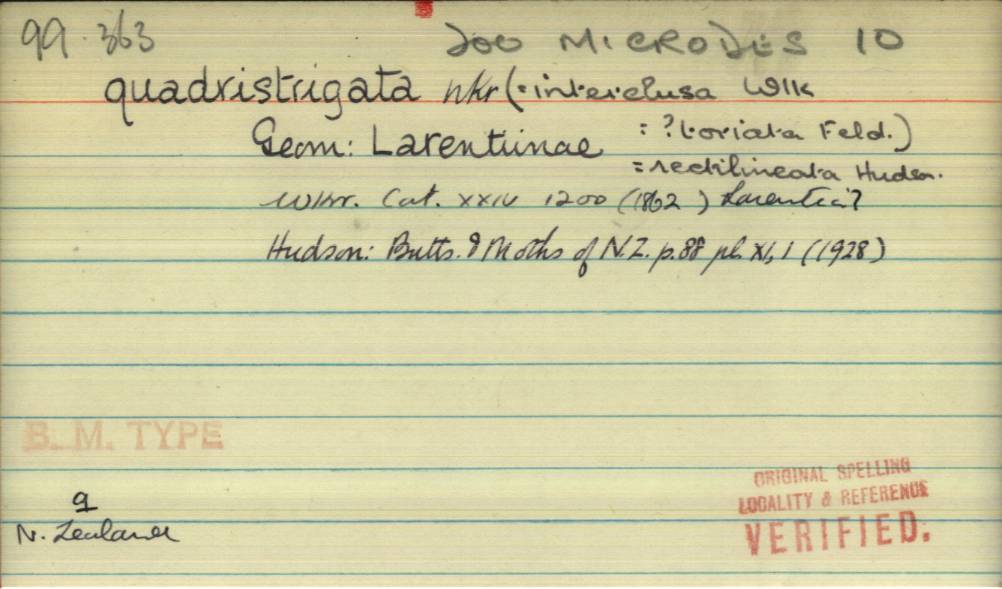 99.363 200 MICRODES 10
quadristrigata Wkr (=interclusa Wlk
Geom: Larentiinae =?toriata Feld.)
=rectilineata Hudson.
Wkr. Cat. XXIV 1200 (1862) Larentia?
Hudson: Butts. & Moths of N.Z. p.88 pl. XI, 1 (1928)
B. M. TYPE
ORIGINAL SPELLING
LOCALITY & REFERENCE
VERIFIED.
♀
N. Zealand